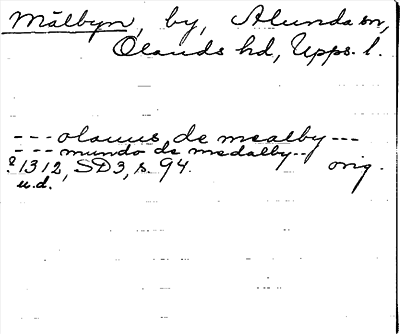 Målbyn, by, Alunda sn,
Olands hd, Upps. l.
--- olauus de mealby ---
--- mundo de medalby --
? 1312, SD3, s. 94. orig.
u.d.